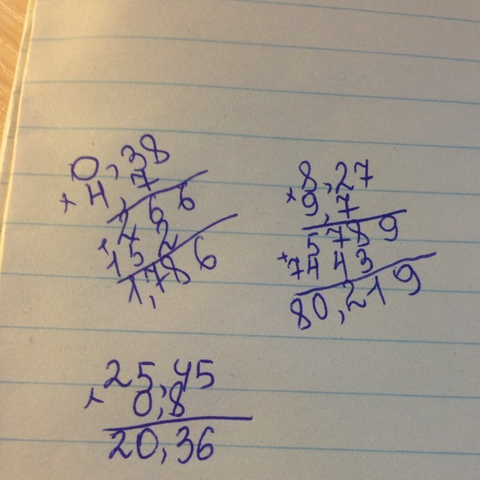 0,38
× 4,7
266
+ 152
1,786
× 8,27
9,7
5789
+ 7443
80,219
× 25,45
0,8
20,36